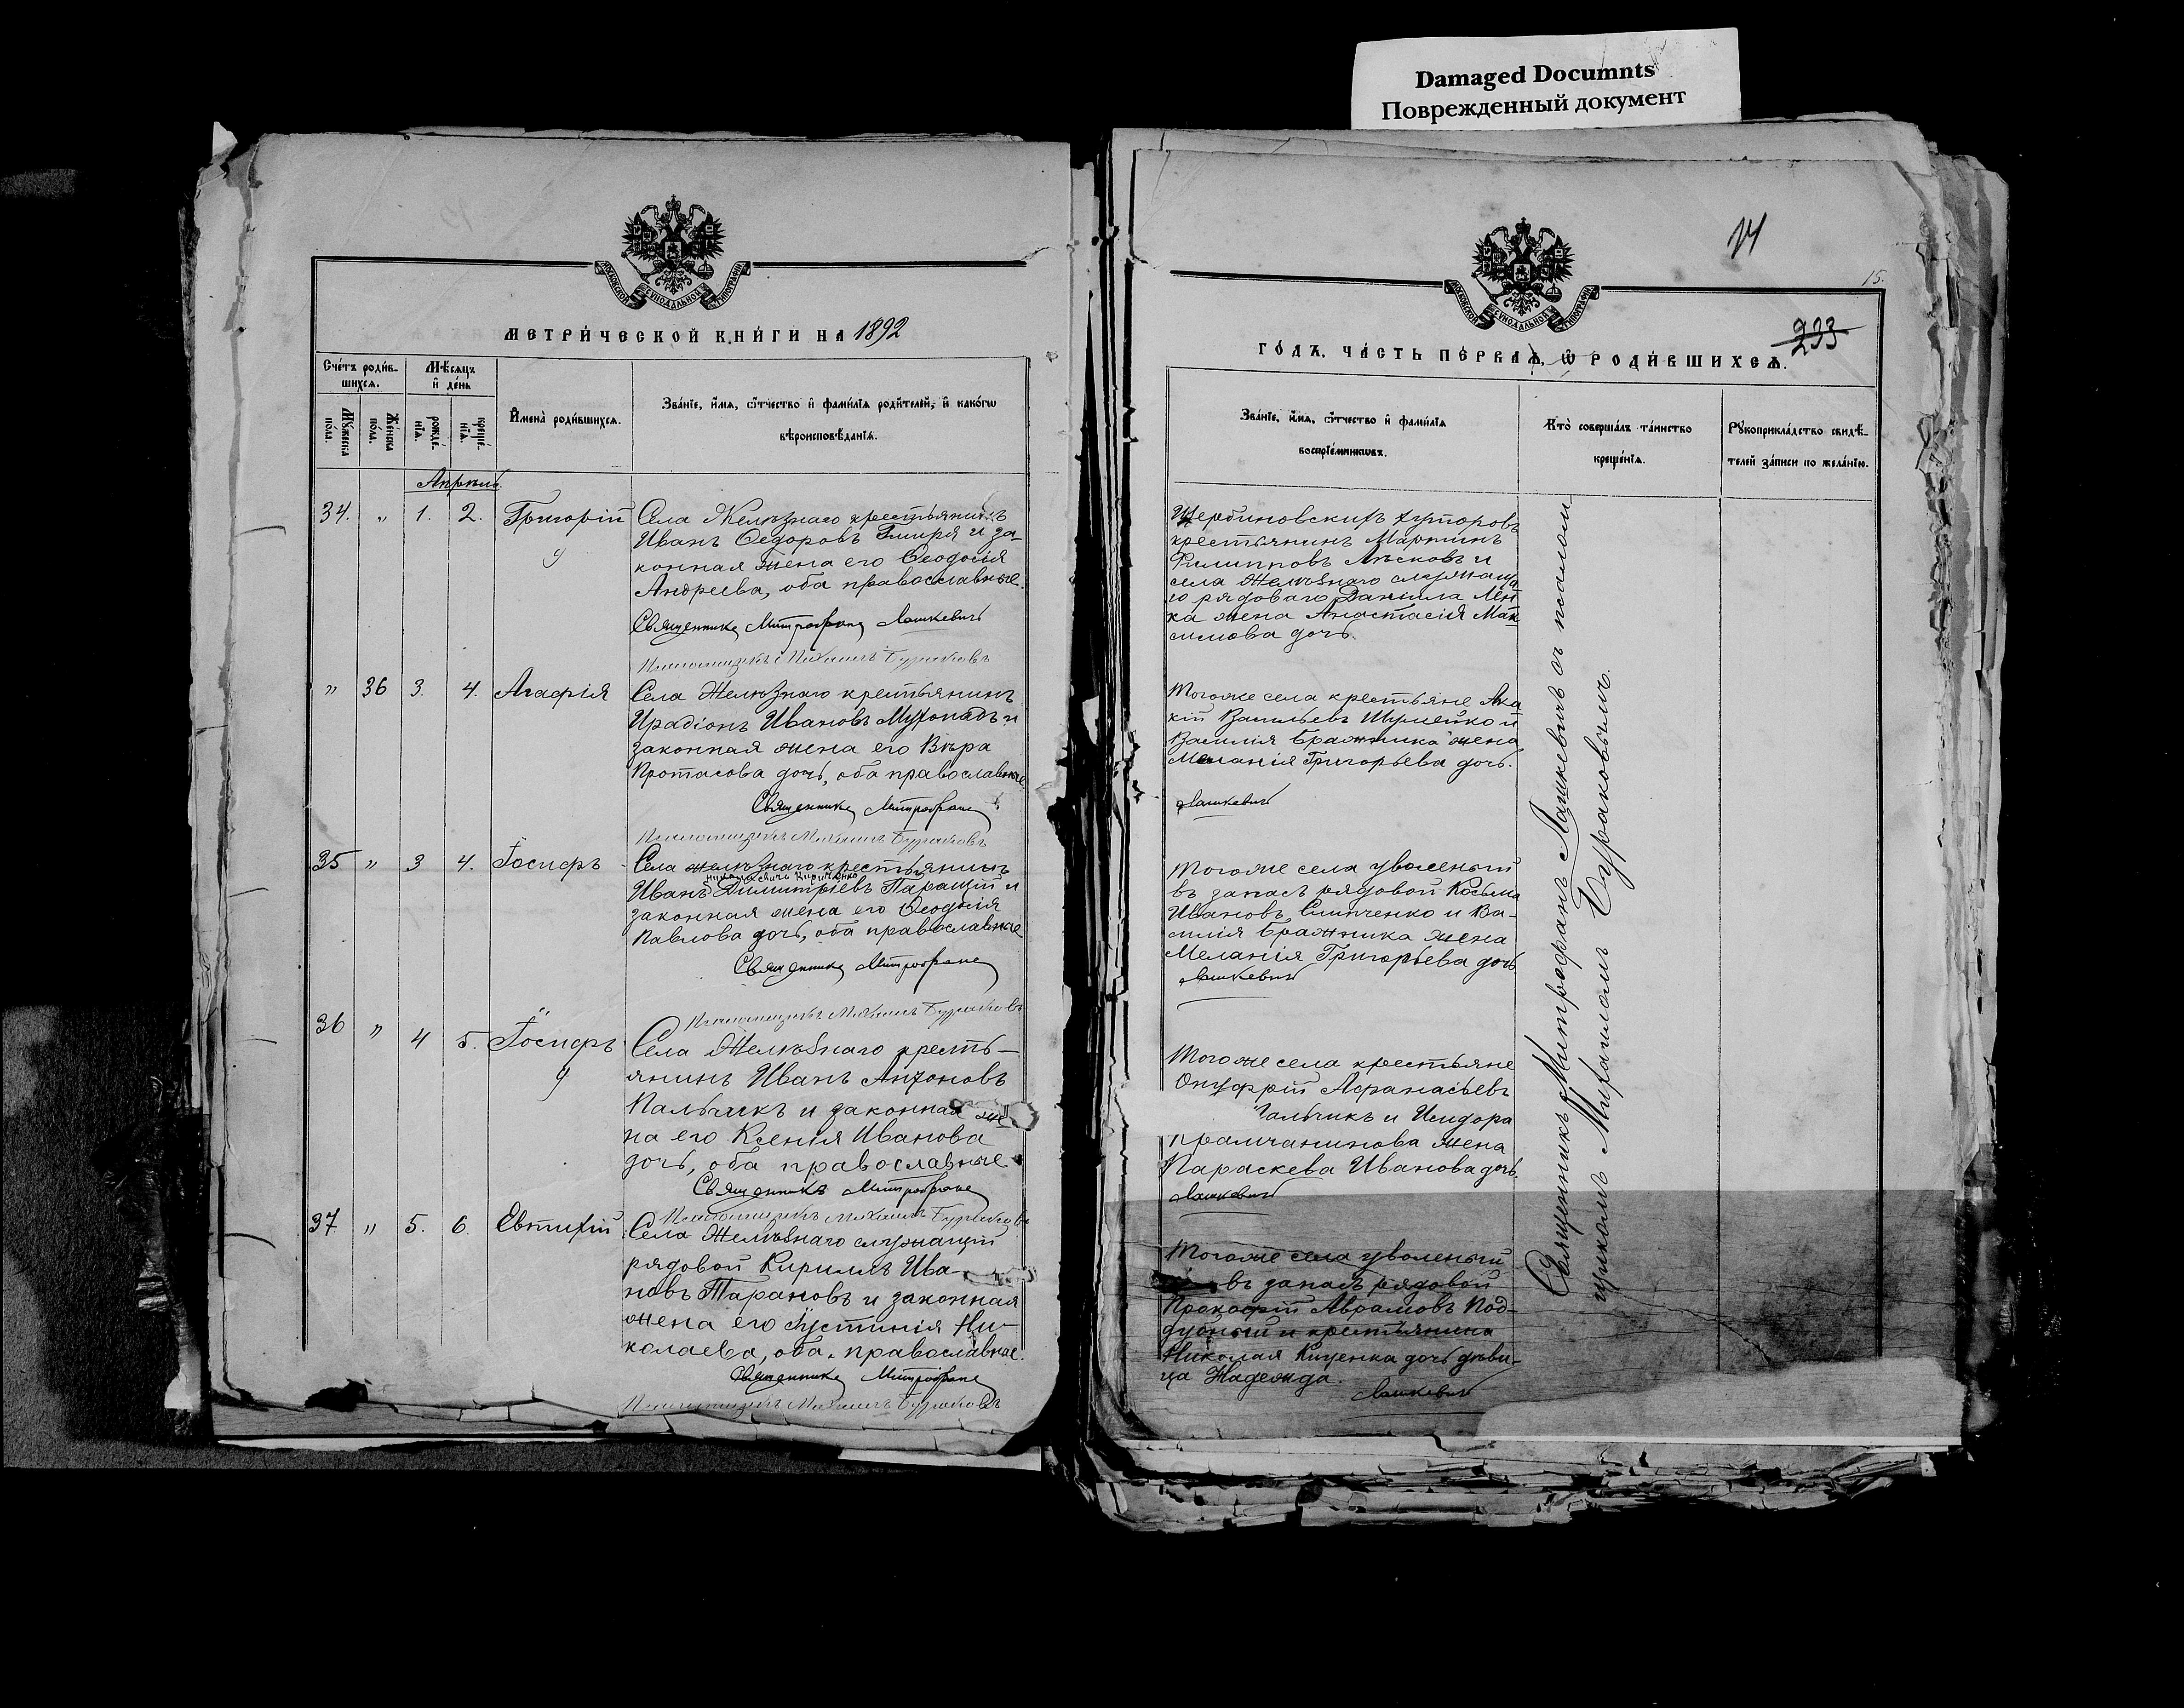 Damaged Documnts
Поврежденный документ
МОСКОВСКОЙ СѴНОДАЛЬНОЙ ТИПОГРАФІИ
МЕТРИ́ЧЕСКОЙ КНИ́ГИ НА 1892
Сче́тъ роди́в-
шихсѧ.
Мѣ́сѧцъ
и҆ де́нь
Мꙋ́жеска
по́ла.
Же́нска
по́ла.
рожде́-
нїѧ.
креще́-
нїѧ.
И҆мена̀ роди́вшихсѧ.
Зва́нїе, и҆́мѧ, ѻ҆́тчество и҆ фами́лїѧ роди́телей, и҆ како́гѡ
вѣроисповѣ́данїѧ.
Апрѣль.
34. " 1. 2. Григорій
Села Желѣзнаго крестьянинъ
Иванъ Ѳедоровъ Гмиря и за-
конная жена его Ѳеодосія
Андреева, оба православные.
Священникъ Митрофанъ Лашкевичъ
Псаломщикъ Михаилъ Бураковъ
" 36 3. 4. Агафія
Села Желѣзнаго крестьянинъ
Иродіонъ Ивановъ Мухопадъ и
законная жена его Вѣра
Протасова дочь, оба православные
Священникъ Митрофанъ
Псаломщикъ Михаилъ Бураковъ
35 " 3 4. Іосифъ
Села Желѣзнаго крестьянинъ
Кириченко
Иванъ Димитріевъ Паращій и
законная жена его Ѳеодосія
Павлова дочь, оба православные
Священникъ Митрофанъ
Псаломщикъ Михаилъ Бураковъ
36 " 4 5. Іосифъ
Села Желѣзнаго кресть-
янинъ Иванъ Антоновъ
Пальчикъ и законная же-
на его Ксенія Иванова
дочь, оба православные
Священникъ Митрофанъ
Псаломщикъ Михаилъ Бураковъ
37 " 5. 6. Евтихій
Села Желѣзнаго служащій
рядовой Кириллъ Ива-
новъ Тарановъ и законная
жена его Іустинія Ни-
колаева, оба православные.
Священникъ Митрофанъ
Псаломщикъ Михаилъ Бураковъ
14
15.
233
МОСКОВСКОЙ СѴНОДАЛЬНОЙ ТИПОГРАФІИ
ГО́ДЪ, ЧА́СТЬ ПЕ́РВАѦ, Ѽ РОДИ́ВШИХСѦ.
Зва́нїе, и҆́мѧ, ѻ҆́тчество и҆ фами́лїѧ
воспрїе́мникѡвъ.
Кто̀ соверша́лъ та́инство
креще́нїѧ.
Рꙋкоприкла́дство свидѣ́-
телей за́писи по жела́нїю.
Щербиновскихъ хуторовъ
крестьянинъ Мартинъ
Филипповъ Лѣсковъ и
села Желѣзнаго служаща
го рядоваго Даніила
ка жена Анастасія Мак
симова дочь.
Тогоже села крестьяне Ака
кій Васильевъ Шумейко и
Василія Бражника жена
Меланія Григорьева дочь.
Лашкевичъ
Тогоже села уволеный
въ запасъ рядовой Косьма
Ивановъ Слипченко и Ва-
силія Бражника жена
Меланія Григорьева дочь
Лашкевичъ
Тогоже села крестьяне
Онуфрій Афанасьевъ
Пальчикъ и Исидора
Крамчанинова жена
Параскева Иванова дочь.
Лашкевичъ
Тогоже села уволеный
въ запасъ рядовой
Прокофій Аврамовъ Под-
дубный и крестьянина
Николая Киценка дочь дѣви-
ца Надежда.
Лашкевичъ
Священникъ Митрофанъ Лашкевичъ съ псалом
щикомъ Михаиломъ Бураковымъ.